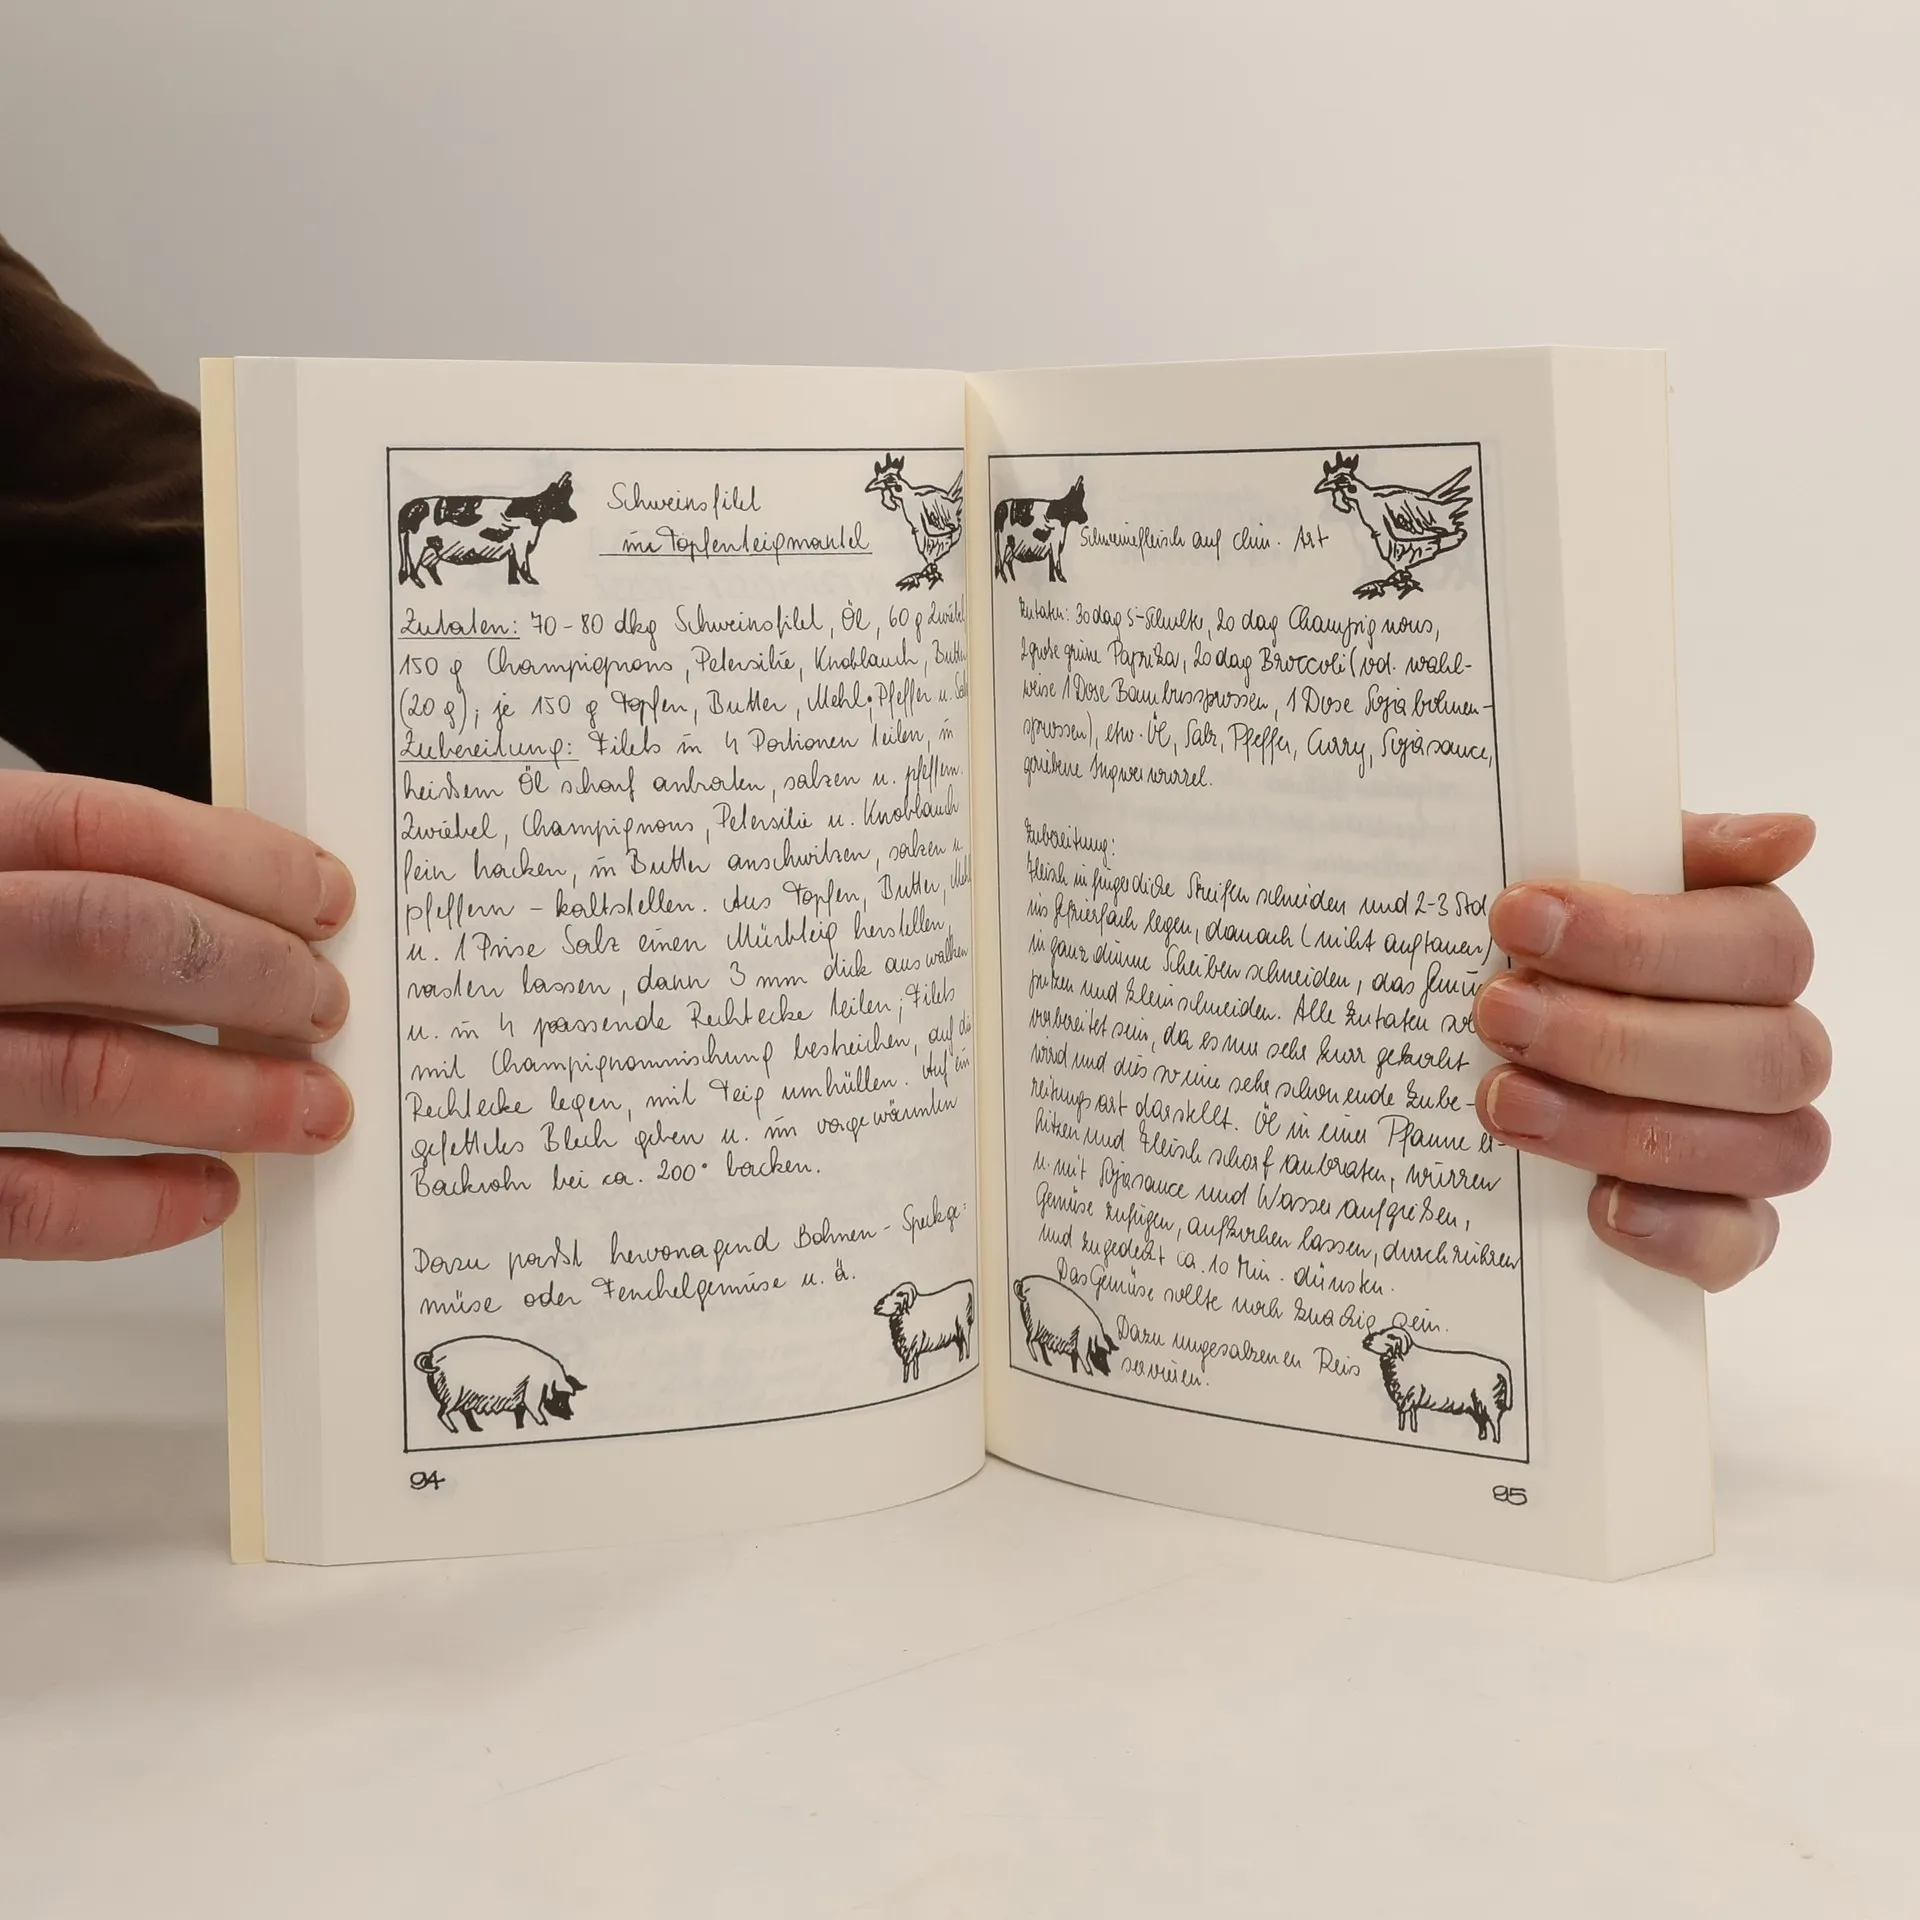 Schweinsfilet
im Topfenteigmantel
Zutaten: 70-80 dkg Schweinsfilet, Öl, 60 g Zwiebel
150 g Champignons, Petersilie, Knoblauch, Butter
(20 g); je 150 g Topfen, Butter, Mehl; Pfeffer u. Salz
Zubereitung: Filets in 4 Portionen teilen, in
heißem Öl scharf anbraten, salzen u. pfeffern.
Zwiebel, Champignons, Petersilie u. Knoblauch
fein hacken, in Butter anschwitzen, salzen u.
pfeffern - kaltstellen. Aus Topfen, Butter, Mehl
u. 1 Prise Salz einen Mürbteig herstellen,
rasten lassen, dann 3 mm dick auswalken
u. in 4 passende Rechtecke teilen; Filets
mit Champignonmischung bestreichen, auf die
Rechtecke legen, mit Teig umhüllen. Auf ein
gefettetes Blech geben u. im vorgewärmten
Backrohr bei ca. 200° backen.
Dazu paßt hervorragend Bohnen-Speckge-
müse oder Fenchelgemüse u. ä.
94
Schweinefleisch auf chin. Art
Zutaten: 30 dag S-Schulter, 20 dag Champignons,
2 große grüne Paprika, 20 dag Broccoli (od. wahl-
weise 1 Dose Bambussprossen, 1 Dose Sojabohnen-
sprossen), etw. Öl, Salz, Pfeffer, Curry, Sojasauce,
geriebene Ingwerwurzel.
Zubereitung:
Fleisch in fingerdicke Streifen schneiden und 2-3 Std
ins Gefrierfach legen, danach (nicht auftauen)
in ganz dünne Scheiben schneiden, das
putzen und kleinschneiden. Alle Zutaten
vorbereitet sein, da es nur sehr kurz gekocht
wird und dies so eine sehr schonende Zube-
reitungsart darstellt. Öl in einer Pfanne er-
hitzen und Fleisch scharf anbraten, würzen
u. mit Sojasauce und Wasser aufgießen,
Gemüse zufügen, aufkochen lassen, durchrühren
und zugedeckt ca. 10 Min. dünsten.
Das Gemüse sollte noch knackig sein.
Dazu ungesalzenen Reis
servieren.
95